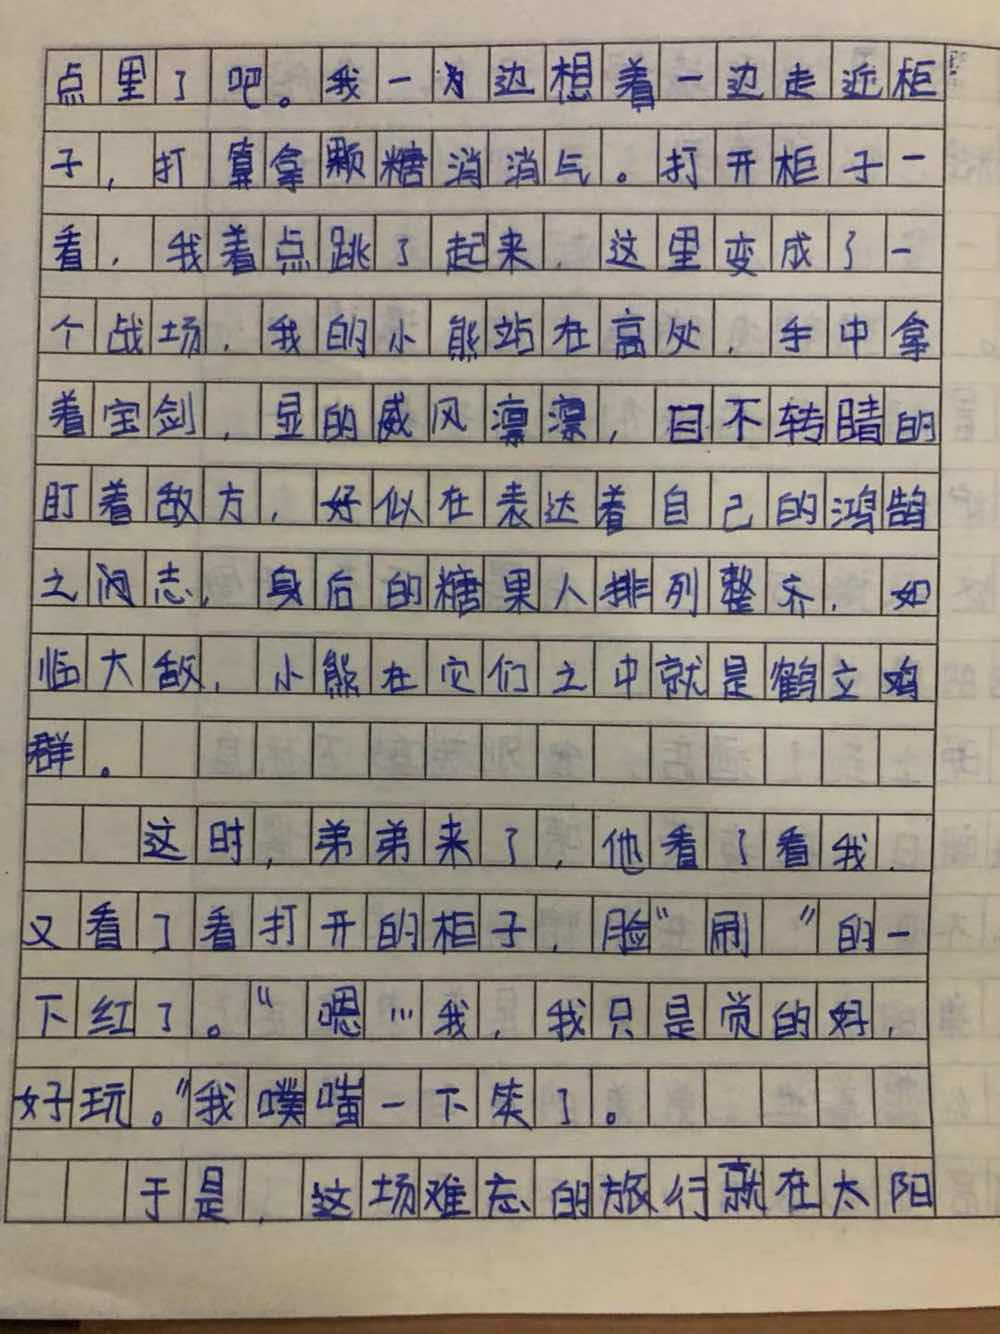 点里了吧。我一为边想着一边走近柜
子，打算拿颗糖消消气。打开柜子一
看，我着点跳了起来，这里变成了一
个战场，我的小熊站在高处，手中拿
着宝剑，显的威风凛凛，目不转睛的
盯着敌方，好似在表达着自己的鸿鹄
之闪志，身后的糖果人排列整齐，如
临大敌，小熊在它们之中就是鹤立鸡
群。
这时，弟弟来了，他看了看我，
又看了看打开的柜子，脸“刷”的一
下红了。“嗯…我，我只是觉的好，
好玩。”我噗嗤一下笑了。
于是，这场难忘的旅行就在太阳